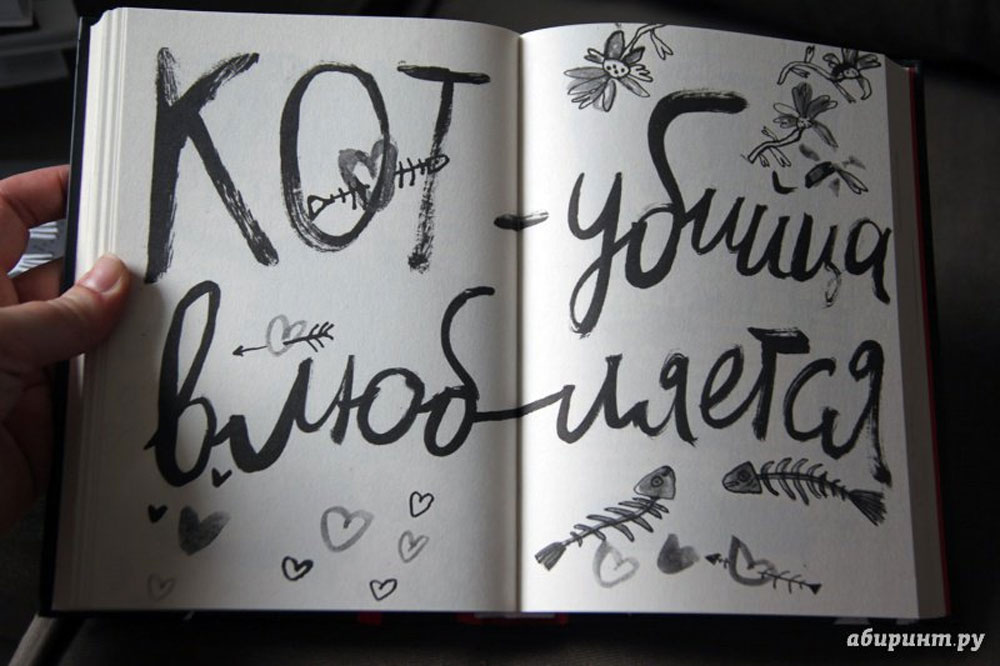 КОТ-убийца
влюбляется
абиринт.ру